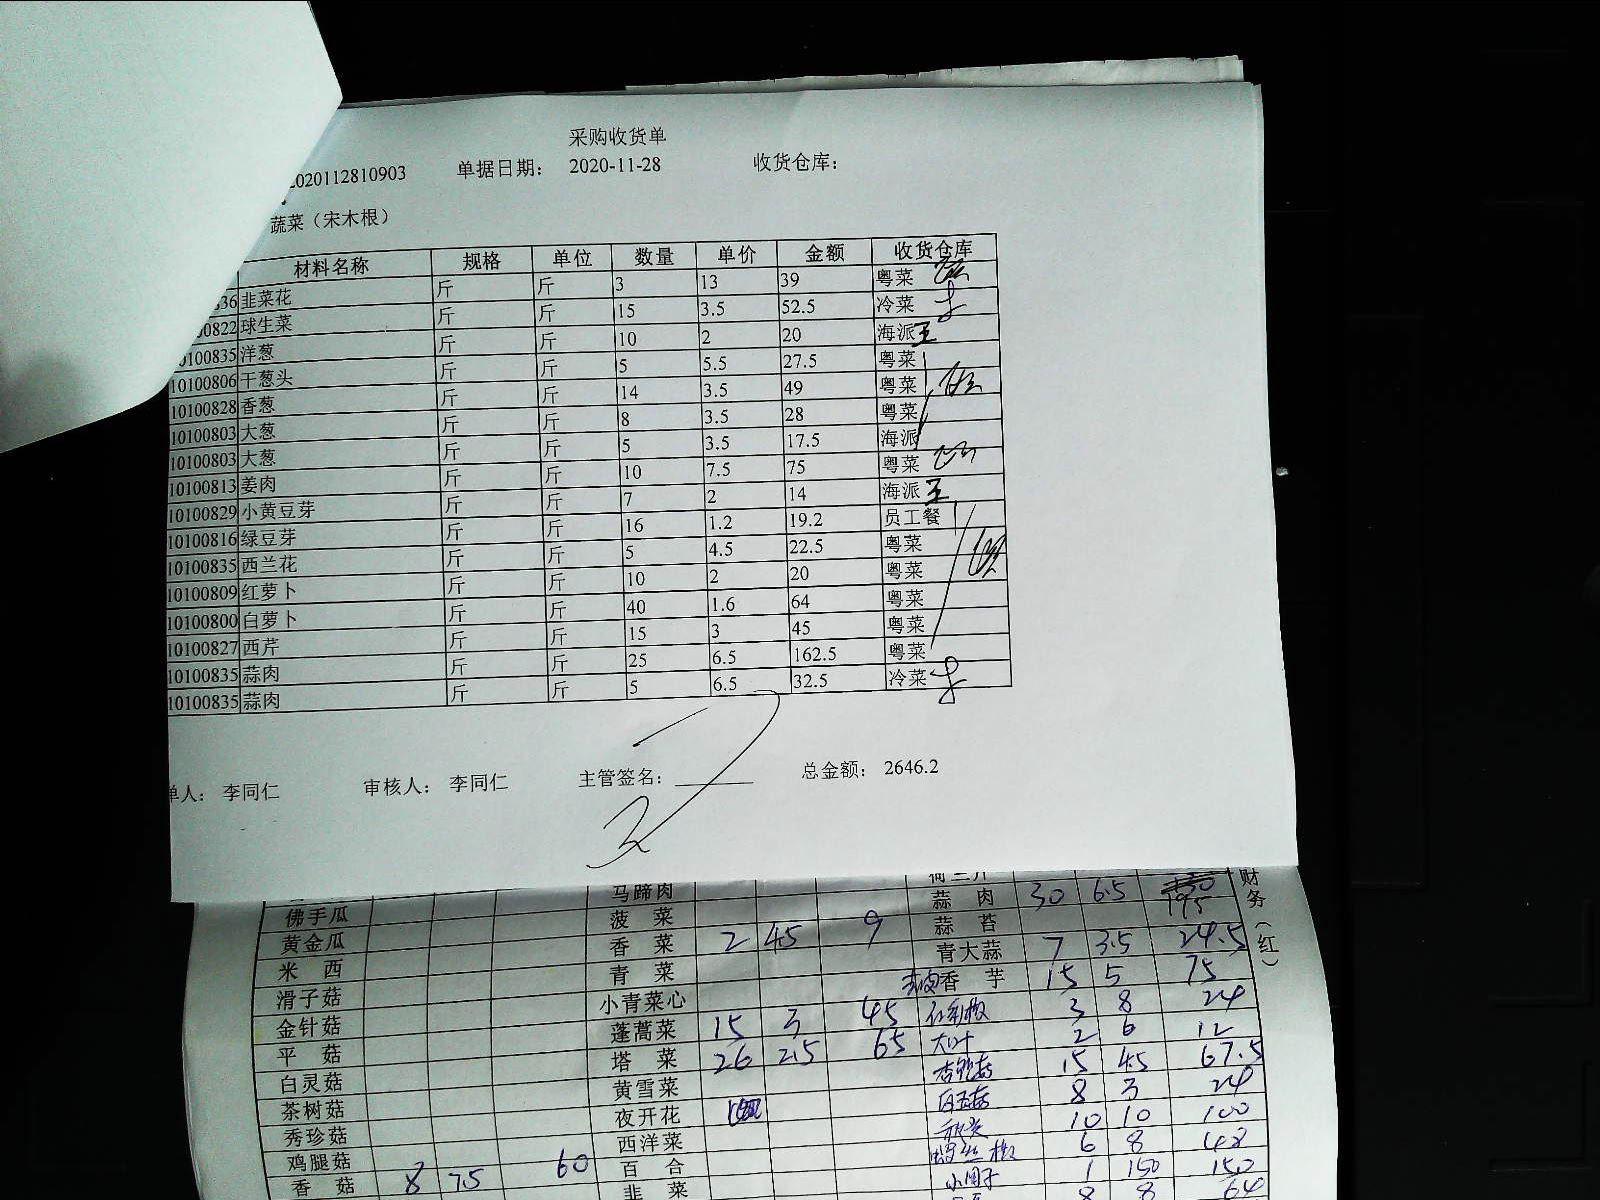 采购收货单
2020112810903 单据日期： 2020-11-28 收货仓库：
蔬菜（宋木根）
材料名称 规格 单位 数量 单价 金额 收货仓库
836 韭菜花 斤 斤 3 13 39 粤菜
00822 球生菜 斤 斤 15 3.5 52.5 冷菜
10100835 洋葱 斤 斤 10 2 20 海派 王
10100806 干葱头 斤 斤 5 5.5 27.5 粤菜
10100828 香葱 斤 斤 14 3.5 49 粤菜
10100803 大葱 斤 斤 8 3.5 28 粤菜
10100803 大葱 斤 斤 5 3.5 17.5 海派
10100813 姜肉 斤 斤 10 7.5 75 粤菜
10100829 小黄豆芽 斤 斤 7 2 14 海派 王
10100816 绿豆芽 斤 斤 16 1.2 19.2 员工餐
10100835 西兰花 斤 斤 5 4.5 22.5 粤菜
10100809 红萝卜 斤 斤 10 2 20 粤菜
10100800 白萝卜 斤 斤 40 1.6 64 粤菜
10100827 西芹 斤 斤 15 3 45 粤菜
10100835 蒜肉 斤 斤 25 6.5 162.5 粤菜
10100835 蒜肉 斤 斤 5 6.5 32.5 冷菜
单人： 李同仁 审核人： 李同仁 主管签名： 总金额： 2646.2
马蹄肉
佛手瓜 菠菜 蒜肉 30 6.5 195
黄金瓜 香菜 2 4.5 9 蒜苔
米西 青菜 青大蒜 7 3.5 24.5
滑子菇 小青菜心 香芋 15 5 75
金针菇 蓬蒿菜 15 3 45 3 8 24
平菇 塔菜 26 2.5 65 大叶 2 6 12
白灵菇 黄雪菜 杏鲍菇 15 4.5 67.5
茶树菇 夜开花 白玉菇 8 3 24
秀珍菇 西洋菜 10 10 100
鸡腿菇 百合 6 8 48
香菇 8 7.5 60 韭菜 1 150 150
8 8 64
财务（红）